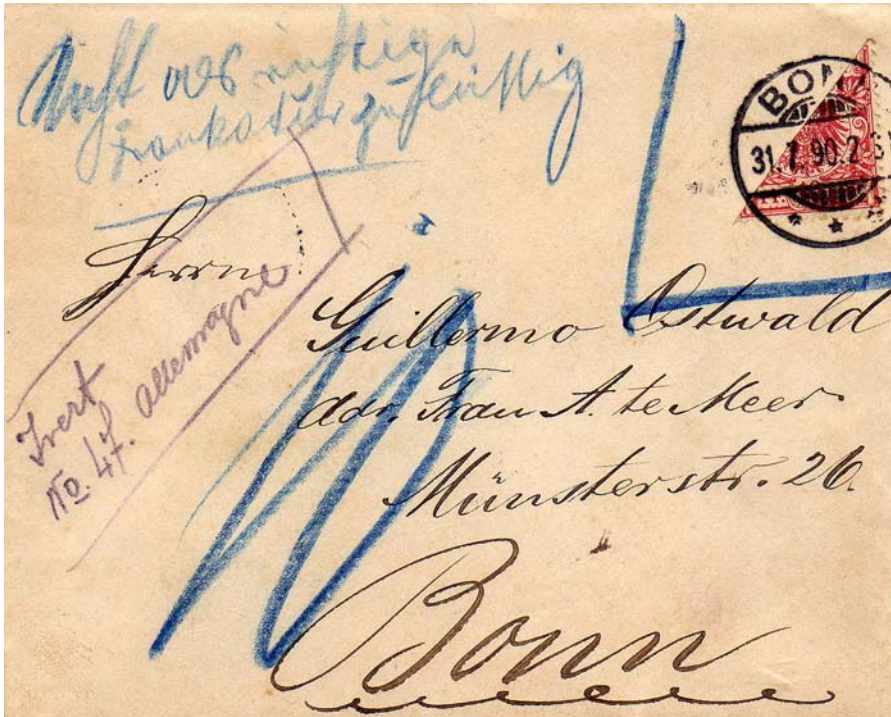 Nicht als richtige
Frankatur zulässig
BON
31.7.90.2
Herrn
Guillermo Ostwald
adr. Frau A. te Meer
Münsterstr. 26.
Bonn
10
Ivert
No. 47. Allemagne